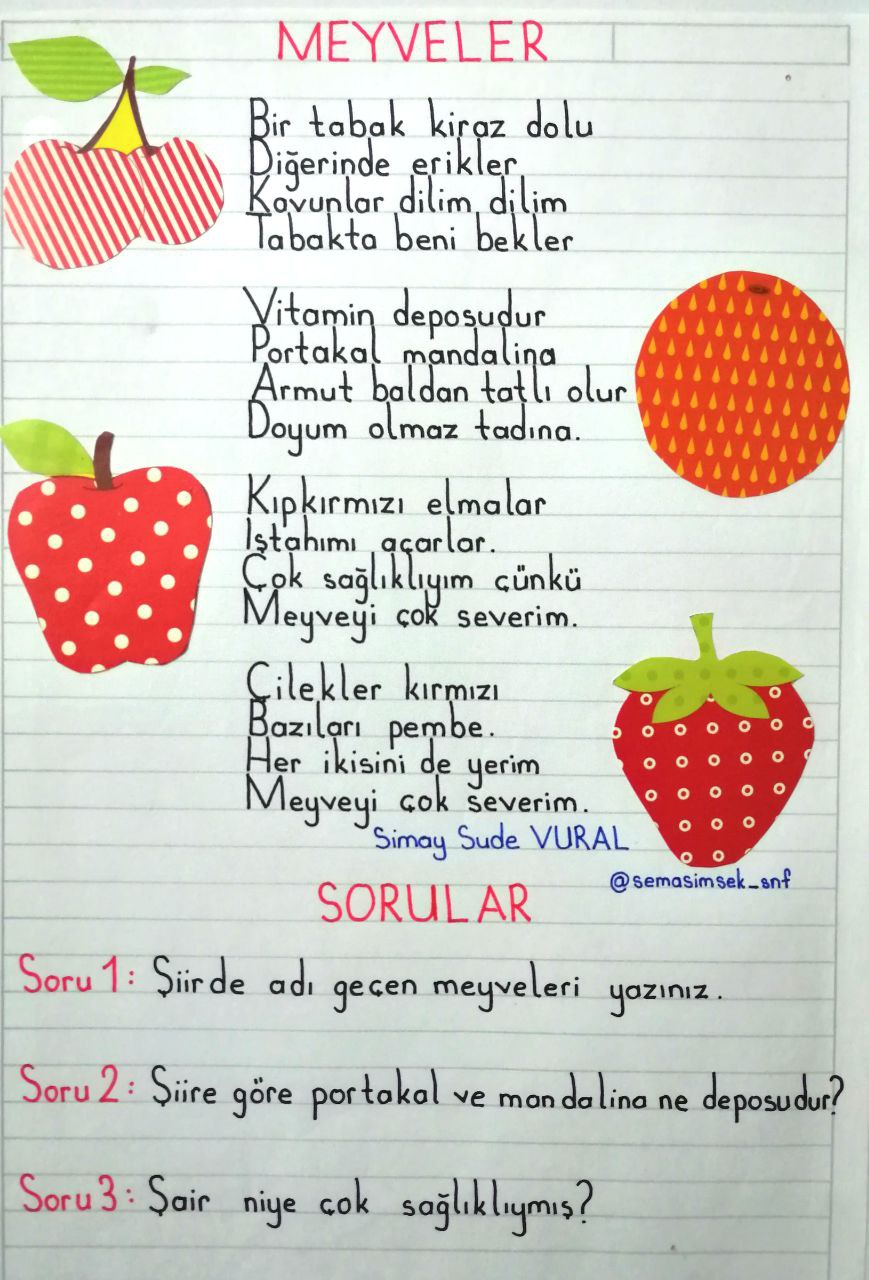 MEYVELER
Bir tabak kiraz dolu
Diğerinde erikler
Kavunlar dilim dilim
Tabakta beni bekler
Vitamin deposudur
Portakal mandalina
Armut baldan tatlı olur
Doyum olmaz tadına.
Kıpkırmızı elmalar
İştahımı açarlar.
Çok sağlıklıyım çünkü
Meyveyi çok severim.
Çilekler kırmızı
Bazıları pembe.
Her ikisini de yerim
Meyveyi çok severim.
Simay Sude VURAL
@semasimsek_snf
SORULAR
Soru 1: Şiirde adı geçen meyveleri yazınız.
Soru 2: Şiire göre portakal ve mandalina ne deposudur?
Soru 3: Şair niye çok sağlıklıymış?